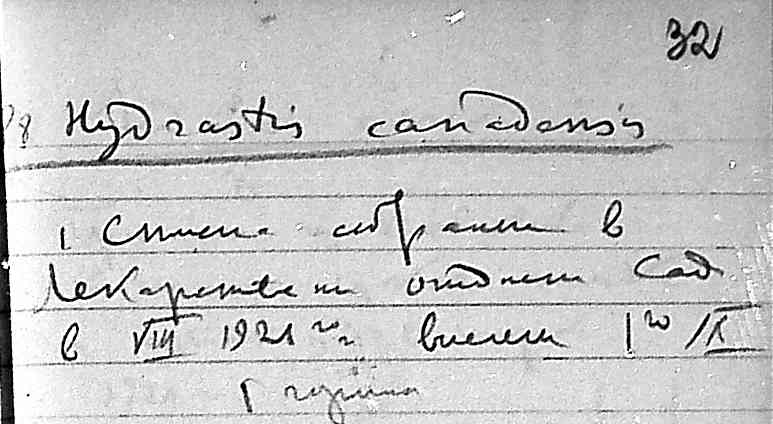 32
Hydrastis canadensis
1 Семена собраны в
Лекарственном отделении Сада
в VIII 1921 г. высеяны 1го/IX